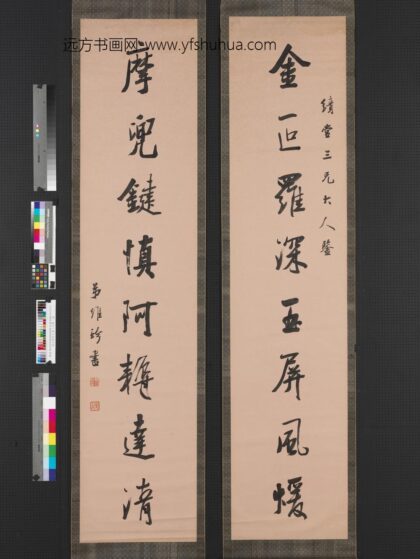 远方书画网 www.yfshuhua.com
績堂三兄大人鑒
金叵羅深玉屏風煖
摩兜鍵慎阿耨達清
弟維珍書